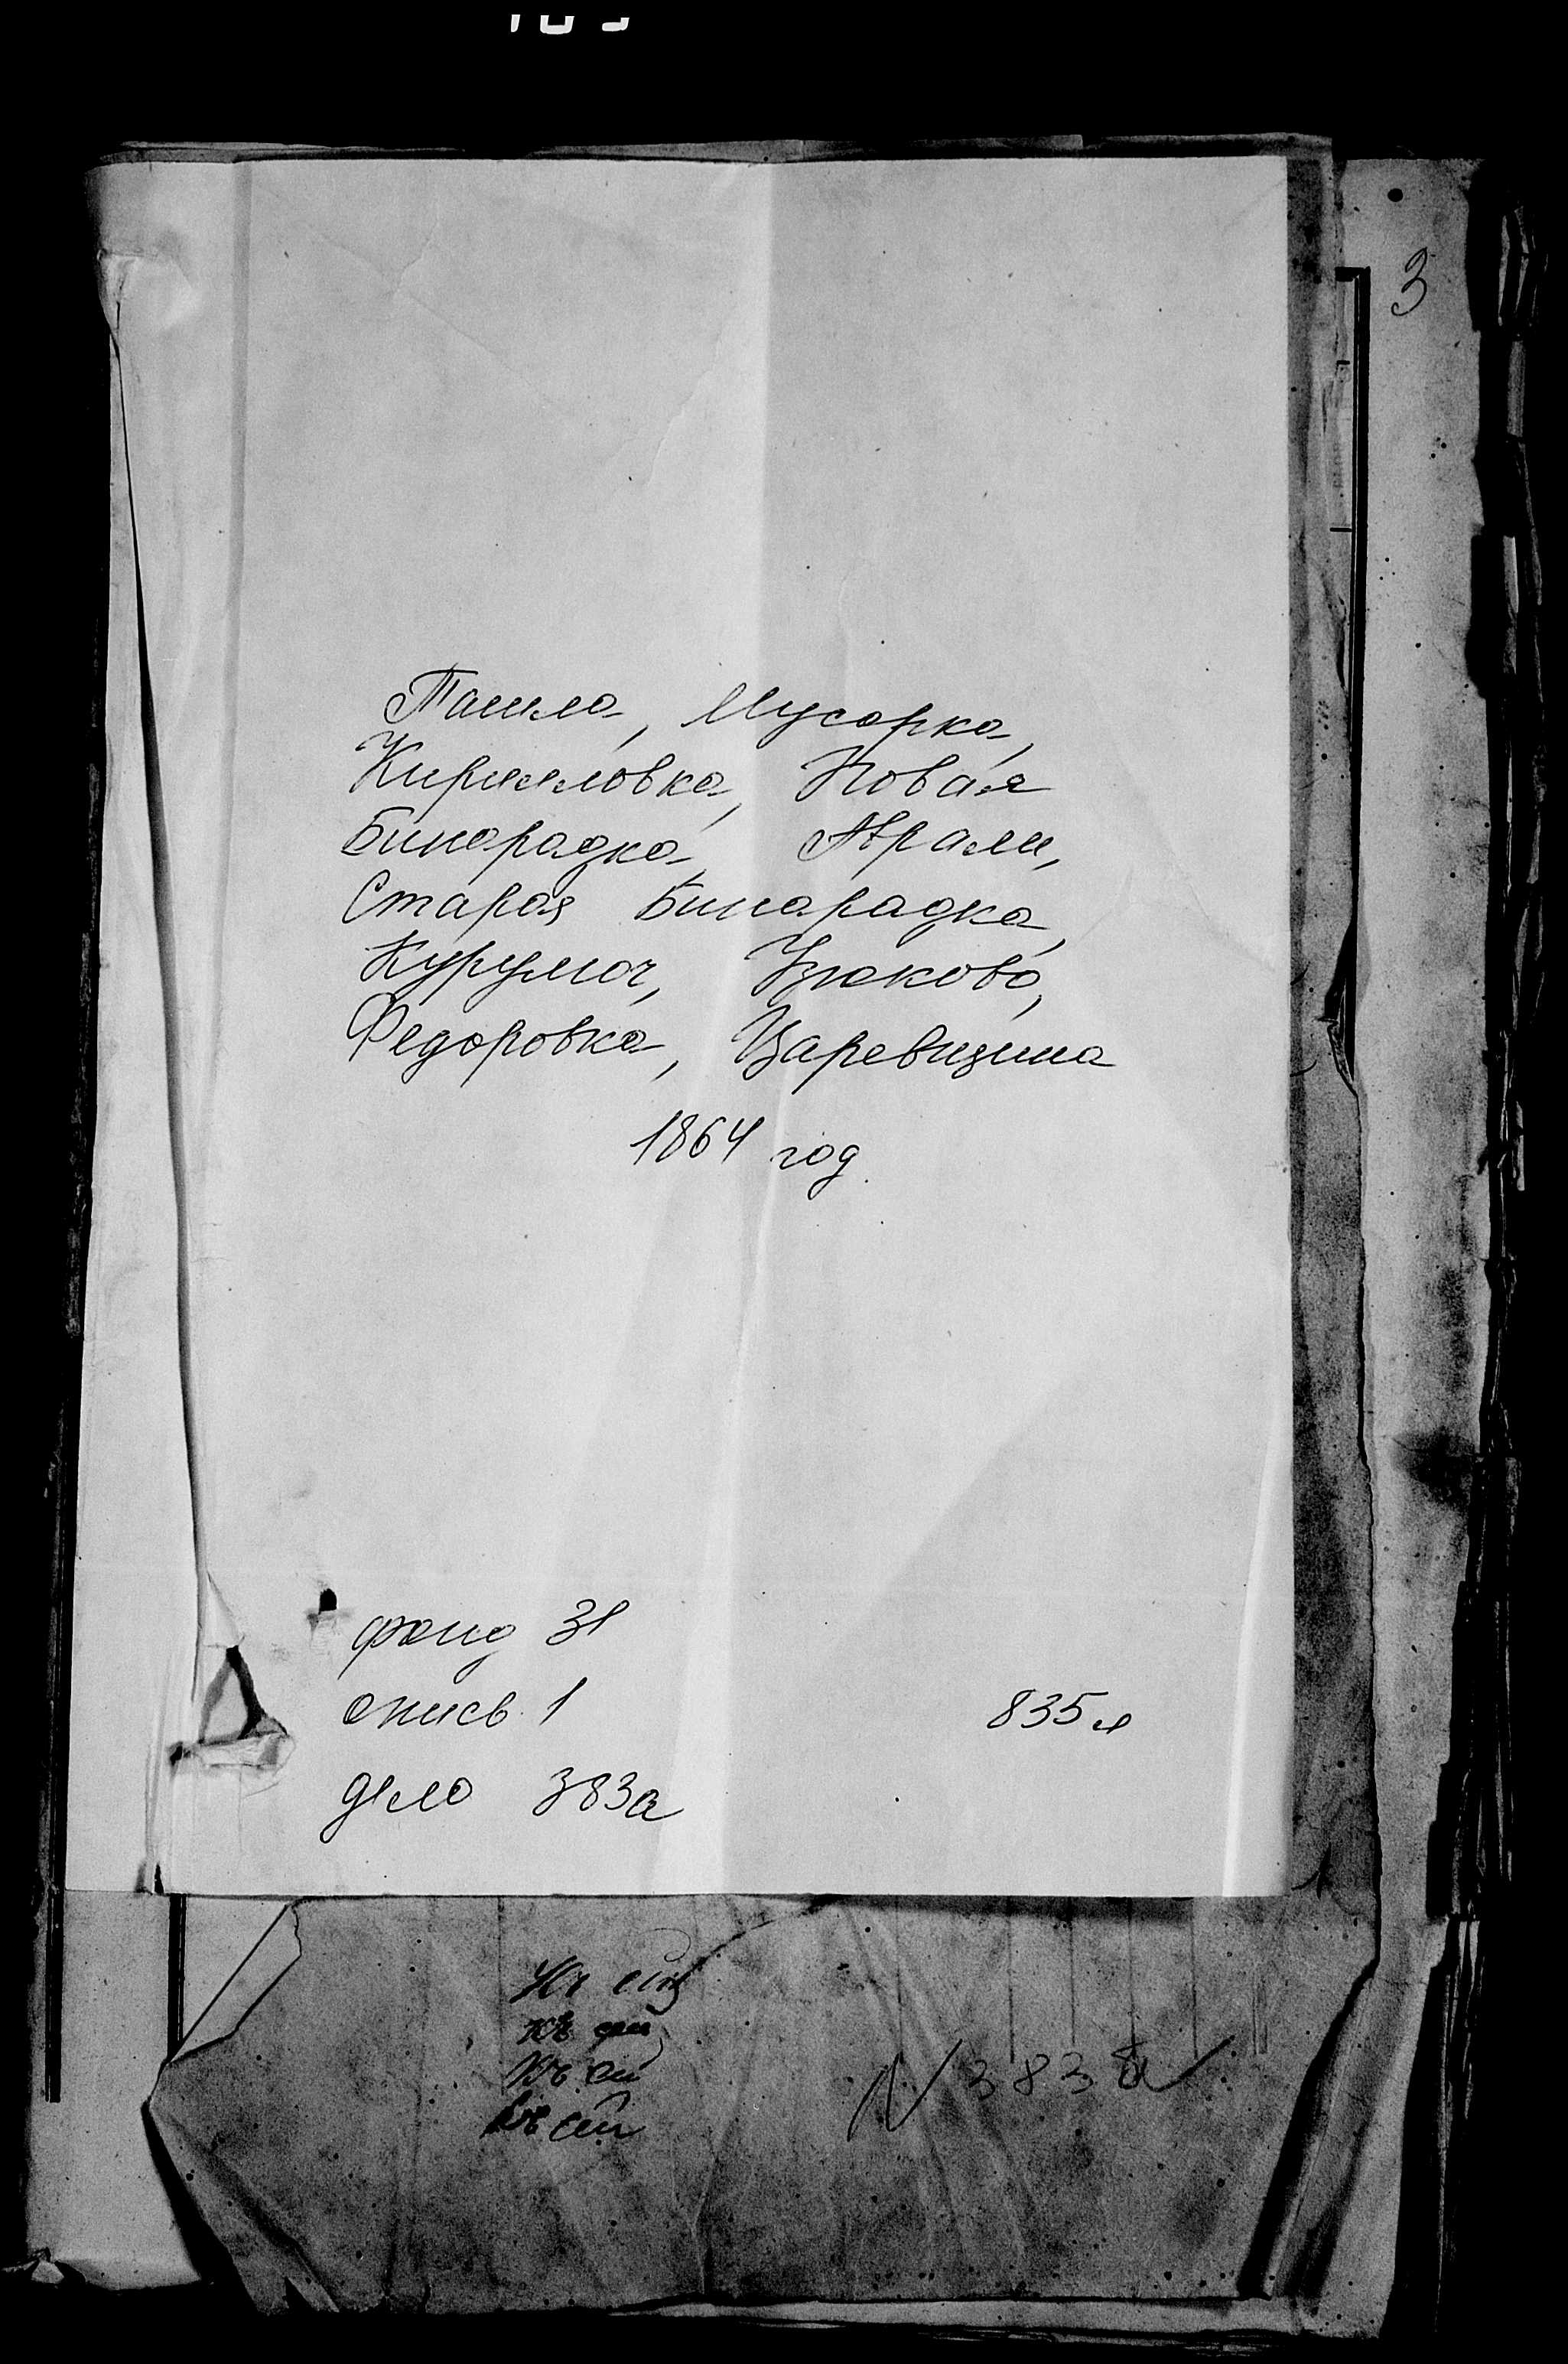 3
Ташла, Мусорка,
Кирилловка, Новая
Бинарадка, Аврали,
Старая Бинарадка,
Курумоч, Узюково,
Федоровка, Царевщина
1864 год.
фонд 31
опись 1
835 л
дело 383а
N 383 а